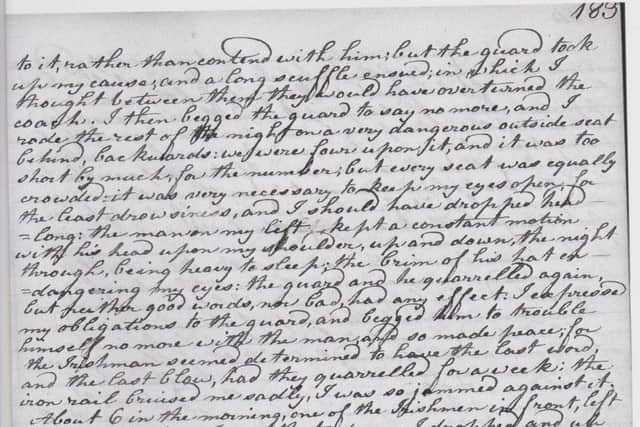 183
to it, rather than contend with him; but the guard took
up my cause; and a long scuffle ensued; in which I
thought between them they would have overturned the
coach. I then begged the guard to say no more, and I
rode the rest of the night on a very dangerous outside seat
behind, backwards: we were four upon it, and it was too
short by much, for the number; but every seat was equally
crowded: it was very necessary to keep my eyes open; for
the least drowsiness, and I should have dropped head
=long: the man on my left, kept a constant motion
with his head upon my shoulder, up and down, the night
through, being heavy to sleep; the brim of his hat en=
=dangering my eyes: the guard and he quarrelled again,
but neither good words, nor bad, had any effect: I expressed
my obligations to the guard, and begged him to trouble
himself no more with the man, and so made peace; for
the Irishman seemed determined to have the last word,
and the last blow, had they quarrelled for a week: the
iron rail bruised me sadly, I was so jammed against it.
About 6 in the morning, one of the Irishmen in front, left
I dropped and up